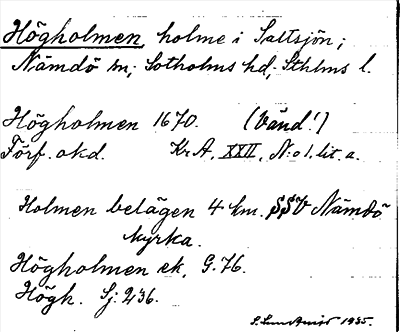 Högholmen, holme i Saltsjön;
Nämdö sn; Sotholms hd; Sthlms l.
Högholmen 1670. (Vänd!)
Förf. okd. Kr A, XXII, N:o 1. lit. a.
Holmen belägen 4 km. SSV Nämdö
kyrka.
Högholmen ek, G. 76.
Högh. Sj. 236.
1935.